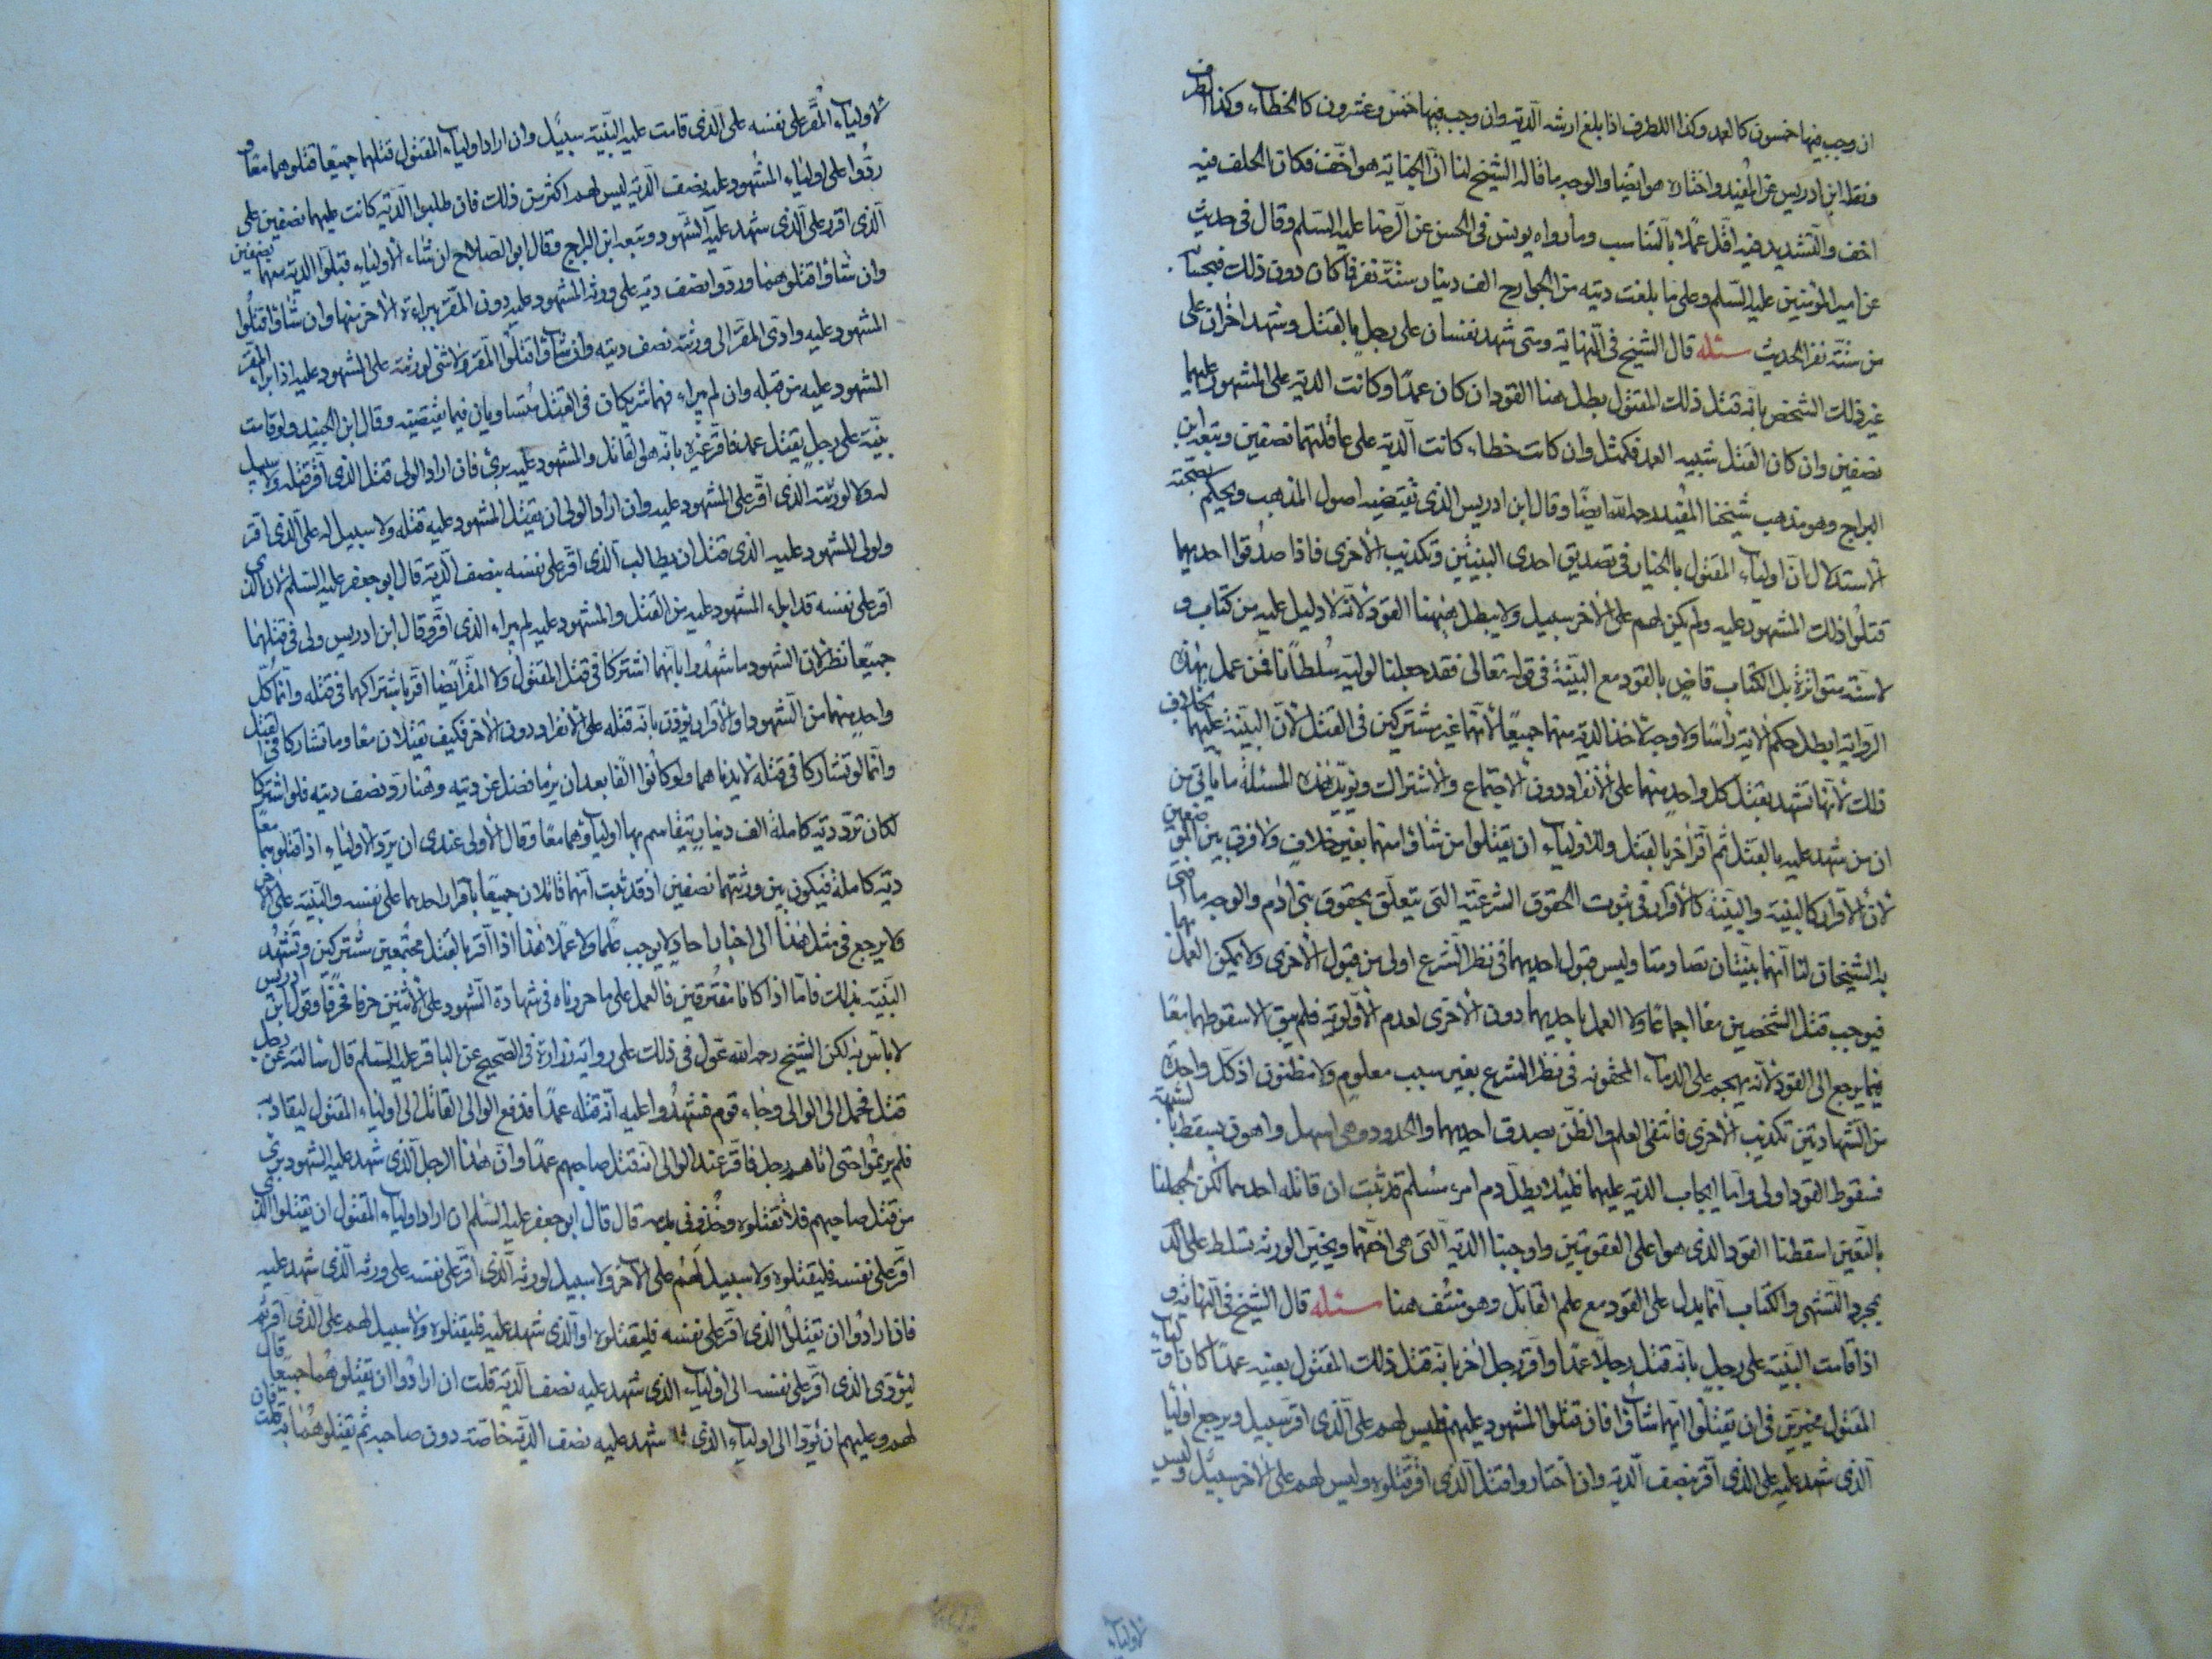 ان وجب فيها خمسون كالعمد وكذا الطرف اذا بلغ ارشه الدية وان وجب فيها خمس وعشرون كالخطاء وكذا الطرف
ونقله ابن ادريس عن المفيد واختاره هو ايضا والوجه ما قاله الشيخ لنا ان الجناية هنا اخف فكان الحلف فيه
اخف والتشديد فيه اقل عملا بالتناسب وما رواه يونس في الحسن عن الرضا عليه السلم وقال في حديث
عن امير المؤمنين عليه السلم وعلى ما بلغت ديته من الجوارح الف دينار ستة نفر فما كان دون ذلك فبحسابه
من ستة نفر الحديث مسئله قال الشيخ في النهاية ومتى شهد نفسان على رجل بالقتل وشهد اخران على
غير ذلك الشخص بانه قتل ذلك المقتول بطل هنا القود ان كان عمدا وكانت الدية على المشهود عليهما
نصفين وان كان القتل شبيه العمد فكمثل وان كانت خطاء كانت الدية على عاقلتهما نصفين وتبعه ابن
البراج وهو مذهب شيخنا المفيد رحمه الله ايضا وقال ابن ادريس الذي تقتضيه اصول المذهب ويحكم بصحته
الاستدلال ان اولياء المقتول بالخيار في تصديق احدى البينتين وتكذيب الاخرى فاذا صدقوا احديهما
قتلوا ذلك المشهود عليه ولم يكن لهم على الاخر سبيل ولا يبطل هيهنا القود لانه لا دليل عليه من كتاب و
لا سنة متواترة بل الكتاب قاض بالقود مع البينة في قوله تعالى فقد جعلنا لوليه سلطانا فمن عمل بهذه
الرواية ابطل حكم الاية راسا ولا وجه لاخذ الدية منهما جميعا لانهما غير مشتركين في القتل لان البينة عليهما بخلاف
ذلك لانها تشهد بقتل كل واحد منهما على الانفراد دون الاجتماع والاشتراك ويزيد هذه المسئلة ما ياتي من
ان من شهد عليه بالقتل ثم اقر اخر بالقتل وللاولياء ان يقتلوا من شاؤا منهما بغير خلاف ولا فرق بين الموضعين
لان الاقرار كالبينة والبينة كالاقرار في ثبوت الحقوق الشرعية التي تتعلق بحقوق بني ادم والوجه ما افتى
به الشيخان لنا انهما بينتان تصادمتا وليس قبول احديهما في نظر الشرع اولى من قبول الاخرى ولا يمكن العمل بهما
فيوجب قتل الشخصين معا اجماعا ولا العمل باحديهما دون الاخرى لعدم الاولوية فلم يبق الا سقوطهما معا
فيما يرجع الى القود لانه يهجم على الدماء المحقونة في نظر الشرع بغير سبب معلوم ولا مظنون اذ كل واحدة
من الشهادتين تكذيب الاخرى فانتفى العلم والظن بصدق احديهما والحدود وهي اسهل واهون يسقط بالشبهة
فسقوط القود اولى واما ايجاب الدية عليهما فلئلا يطل دم امرء مسلم قد ثبت ان قاتله احدهما لكن لجهلنا
بالتعيين اسقطنا القود الذي هو اعلى العقوبتين واوجبنا الدية التي هي اخفهما ويخير الورثه تسلط على الدم
بمجرد التشهي والكتاب انما يدل على القود مع علم القاتل وهو منتف هنا مسئله قال الشيخ في النهاية و
اذا قامت البينة على رجل بانه قتل رجلا عمدا واقر رجل اخر بانه قتل ذلك المقتول بعينه عمدا كان اولياء
المقتول مخيرين في ان يقتلوا ايهما شاؤا فان قتلوا المشهود عليه فليس لهم على الذي اقر سبيل ويرجع اولياء
الذي شهد عليه على الذي اقر بنصف الدية وان اختاروا قتل الذي اقر قتلوه وليس لهم على الاخر سبيل وليس
لاولياء
لاولياء المقر على نفسه على الذي قامت عليه البينة سبيل وان اراد اولياء المقتول قتلهما جميعا قتلوهما معا و
ردوا على اولياء المشهود عليه نصف الدية ليس لهم اكثر من ذلك فان طلبوا الدية كانت عليهما نصفين على
الذي اقر وعلى الذي شهد عليه الشهود وتبعه ابن البراج وقال ابو الصلاح ان شاء الاولياء قبلوا الدية منهما نصفين
وان شاؤا قتلوهما وردوا نصف ديته على ورثه المشهود عليه دون المقر ببراءة الاخر منها وان شاؤا قتلوا
المشهود عليه وادى المقر الى ورثته نصف ديته وان شاؤا قتلوا المقر ولا شئ لورثته على المشهود عليه اذا براء المقر
المشهود عليه من قتله وان لم يبراء فهما شريكان في القتل متساويان فيما يقتضيه وقال ابن الجنيد ولو قامت
بينة على رجل بقتل عمد فاقر غيره بانه هو القاتل والمشهود عليه برئ فان اراد الولي قتل الذي اقر قتله ولا سبيل
له ولا لورثة الذي اقر على المشهود عليه وان اراد الولي ان يقتل المشهود عليه قتله ولا سبيل له على الذي اقر
ولولي المشهود عليه الذي قتل ان يطالب الذي اقر على نفسه بنصف الدية قال ابو جعفر عليه السلم لان الذي
اقر على نفسه قد ابراء المشهود عليه من القتل والمشهود عليه لم يبراء الذي اقر وقال ابن ادريس ولي في قتلهما
جميعا نظر لان الشهود ما شهدوا بانهما اشتركا في قتل المقتول ولا المقر ايضا اقر باشتراكهما في قتله وانما كل
واحد منهما من الشهود والاقرار يؤذن بانه قتله على الانفراد دون الاخر فكيف يقتلان معا وما تشاركا في القتل
وانما لو تشاركا في قتله لابدناهما ولو كانوا الفا بعد ان يرد ما فضل عن ديته وهنا ترد نصف ديته فلو اشتركا
لكان ترد دية كاملة الف دينار يتقاسم بها اولياؤهما معا وقال الاولى عندي ان يرد الاولياء اذا قتلوهما معا
دية كاملة فيكون بين ورثتهما نصفين اذ قد ثبت انهما قاتلان جميعا باقرار احدهما على نفسه والبينة على الاخر
ولا يرجع في مثل هذا الى اخبار احاد لا يوجب علما ولا عملا هذا اذا اقر بالقتل مجتمعين مشتركين وتشهد
البينة بذلك فاما اذا كانا متفرقين فالعمل على ما حررناه في شهادة الشهود على الاثنين حرفا فحرفا وقول ابن ادريس
لا باس به لكن الشيخ رحمه الله عول في ذلك على رواية زرارة في الصحيح عن الباقر عليه السلم قال سالته عن رجل
قتل فحمل الى الوالي وجاء قوم فشهدوا عليه انه قتله عمدا فدفع الوالي القاتل الى اولياء المقتول ليقاد به
فلم يريموا حتى اتاهم رجل فاقر عند الوالي انه قتل صاحبهم عمدا وان هذا الرجل الذي شهد عليه الشهود برئ
من قتل صاحبهم فلا تقتلوه وخذوني بدمه قال قال ابو جعفر عليه السلم ان اراد اولياء المقتول ان يقتلوا الذي
اقر على نفسه فليقتلوه ولا سبيل لهم على الاخر ولا سبيل لورثه الذي اقر على نفسه على ورثه الذي شهد عليه
فاذا ارادوا ان يقتلوا الذي اقر على نفسه فليقتلوه او الذي شهد عليه فليقتلوه ولا سبيل لهم على الذي اقر ثم
ليؤدي الذي اقر على نفسه الى اولياء الذي شهد عليه نصف الدية قلت ان ارادوا ان يقتلوهما جميعا قال
لهم وعليهم ان يؤدوا الى اولياء الذي شهد عليه نصف الدية خاصة دون صاحبه ثم يقتلوهما به قلت فان